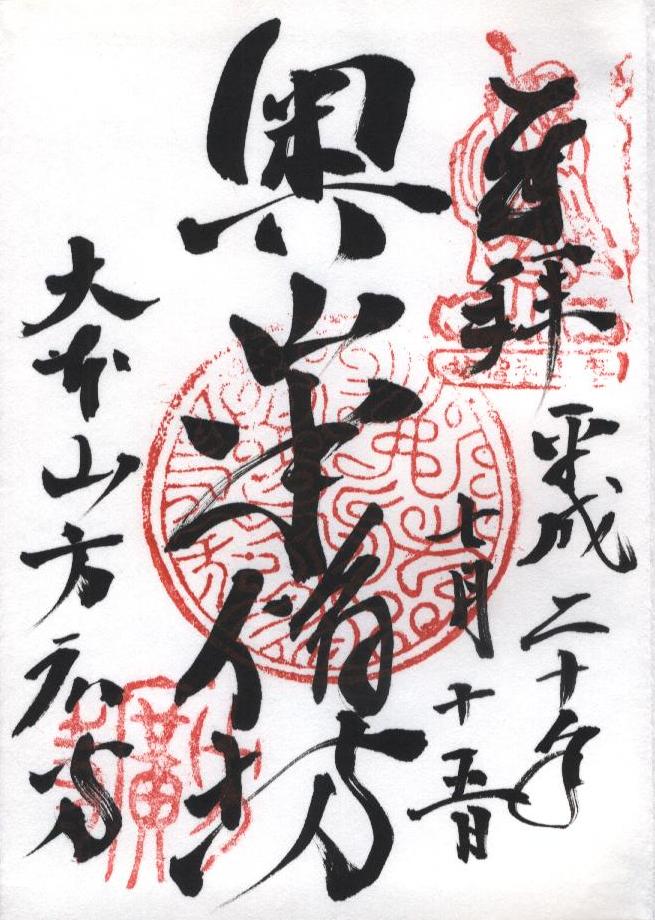 奉拝
平成二十年
七月十五日
奥山半僧坊
大本山方広寺